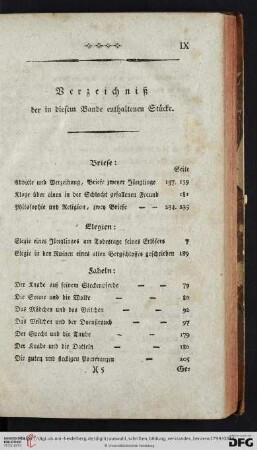 IX
Verzeichniß
der in diesem Bande enthaltenen Stücke.
Briefe:
Seite
und Verzeihung, Briefe zweyer Jünglinge 137. 139
Klage über einen in der Schlacht gefallenen Freund 181
Philosophie und Religion, zwey Briefe — — 234. 235
Elegien:
Elegie eines Jünglings am Todestage seines Erlösers 7
Elegie in den Ruinen eines alten Bergschlosses geschrieben 189
Fabeln:
Der Knabe auf seinem Steckenpferde — 79
Die Sonne und die Wolke — 80
Das Mädchen und das Veilchen — 92
Das Veilchen und der Dornstrauch — 97
Der Specht und die Taube — 179
Der Knabe und die Datteln — 180
Die guten und fleckigen Pomeranzen — 205
X 5
Ge
UNIVERSITÄTS-
BIBLIOTHEK
HEIDELBERG
DFG